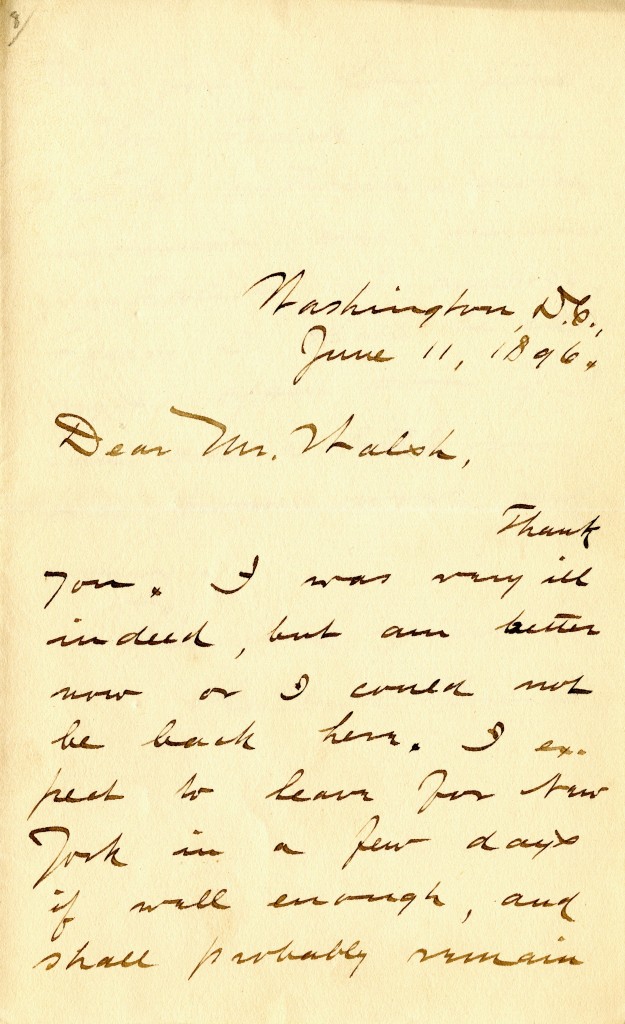 8
Washington, D.C.,
June 11, 1896.
Dear Mr. Walsh,
Thank
you. I was very ill
indeed, but am better
now or I could not
be back here. I ex-
pect to leave for New
York in a few days
if well enough, and
shall probably remain